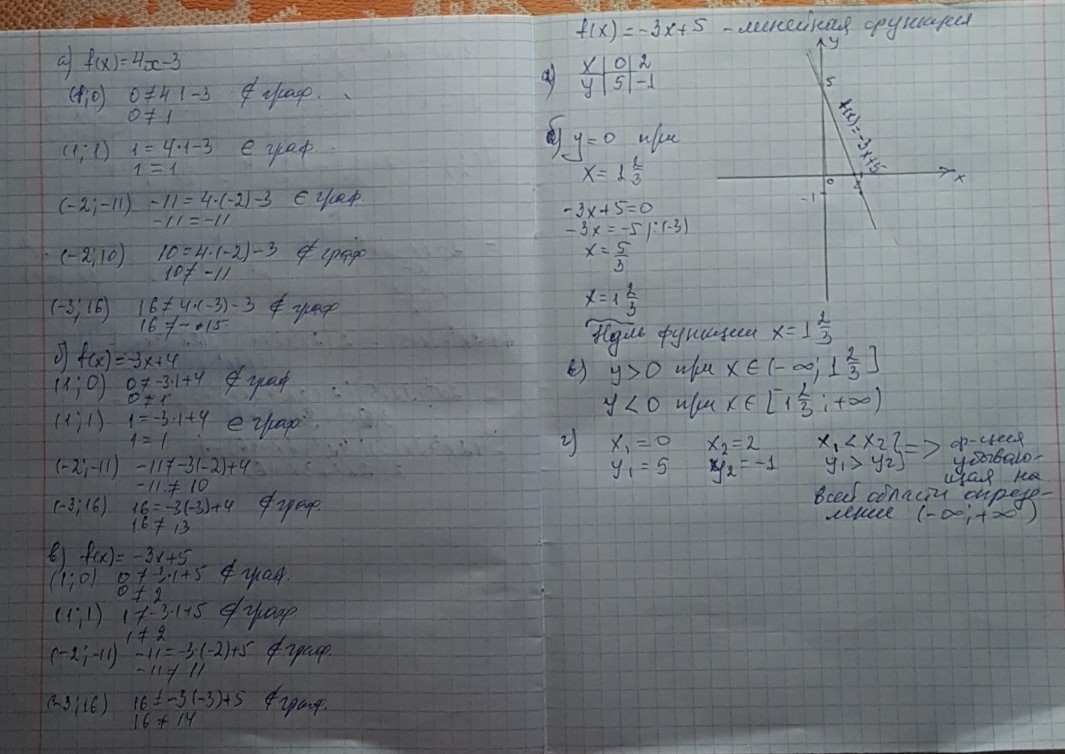 а) f(x)=4x-3
(1;0) 0≠4·1-3 ∉ граф.
0≠1
(1;1) 1=4·1-3 ∈ граф.
1=1
(-2;-11) -11=4·(-2)-3 ∈ граф.
-11=-11
(-2;10) 10=4·(-2)-3 ∉ граф
10≠-11
(-3;16) 16≠4·(-3)-3 ∉ граф
16≠-15
б) f(x)=-3x+4
(1;0) 0≠-3·1+4 ∉ граф
0≠1
(1;1) 1=-3·1+4 ∈ граф
1=1
(-2;-11) -11≠-3(-2)+4
-11≠10
(-3;16) 16=-3(-3)+4 ∉ граф.
16≠13
в) f(x)=-3x+5
(1;0) 0≠-3·1+5 ∉ граф.
0≠2
(1;1) 1≠-3·1+5 ∉ граф
1≠2
(-2;-11) -11=-3·(-2)+5 ∉ граф.
-11≠11
(-3;16) 16≠-3(-3)+5 ∉ граф.
16≠14
f(x)=-3x+5 - линейная функция
а) x 0 2
y 5 -1
б) y=0 при
x=1 2/3
-3x+5=0
-3x=-5 |:(-3)
x=5/3
x=1 2/3
Ноль функции x=1 2/3
в) y>0 при x∈(-∞;1 2/3]
y<0 при x∈[1 2/3;+∞)
г) x₁=0 x₂=2 x₁<x₂} => ф-ция
y₁=5 y₂=-1 y₁>y₂} убываю-
щая на
всей области опреде-
ление (-∞;+∞)
y
5
f(x)=-3x+5
0
x
-1